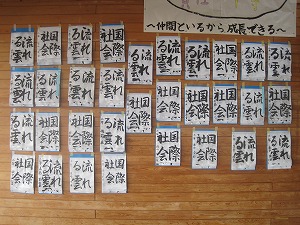 〜仲間といるから成長できる〜
流れる雲
国際社会
流れる雲
国際社会
流れる雲
流れる雲
流れる雲
国際社会
流れる雲
流れる雲
流れる雲
流れる雲
流れる雲
流れる雲
国際社会
国際社会
国際社会
国際社会
国際社会
流れる雲
国際社会
流れる雲
国際社会
流れる雲
国際社会
国際社会
国際社会
国際社会
国際社会
国際社会
国際社会
流れる雲
流れる雲
国際社会
国際社会
国際社会
流れる雲
流れる雲
国際社会